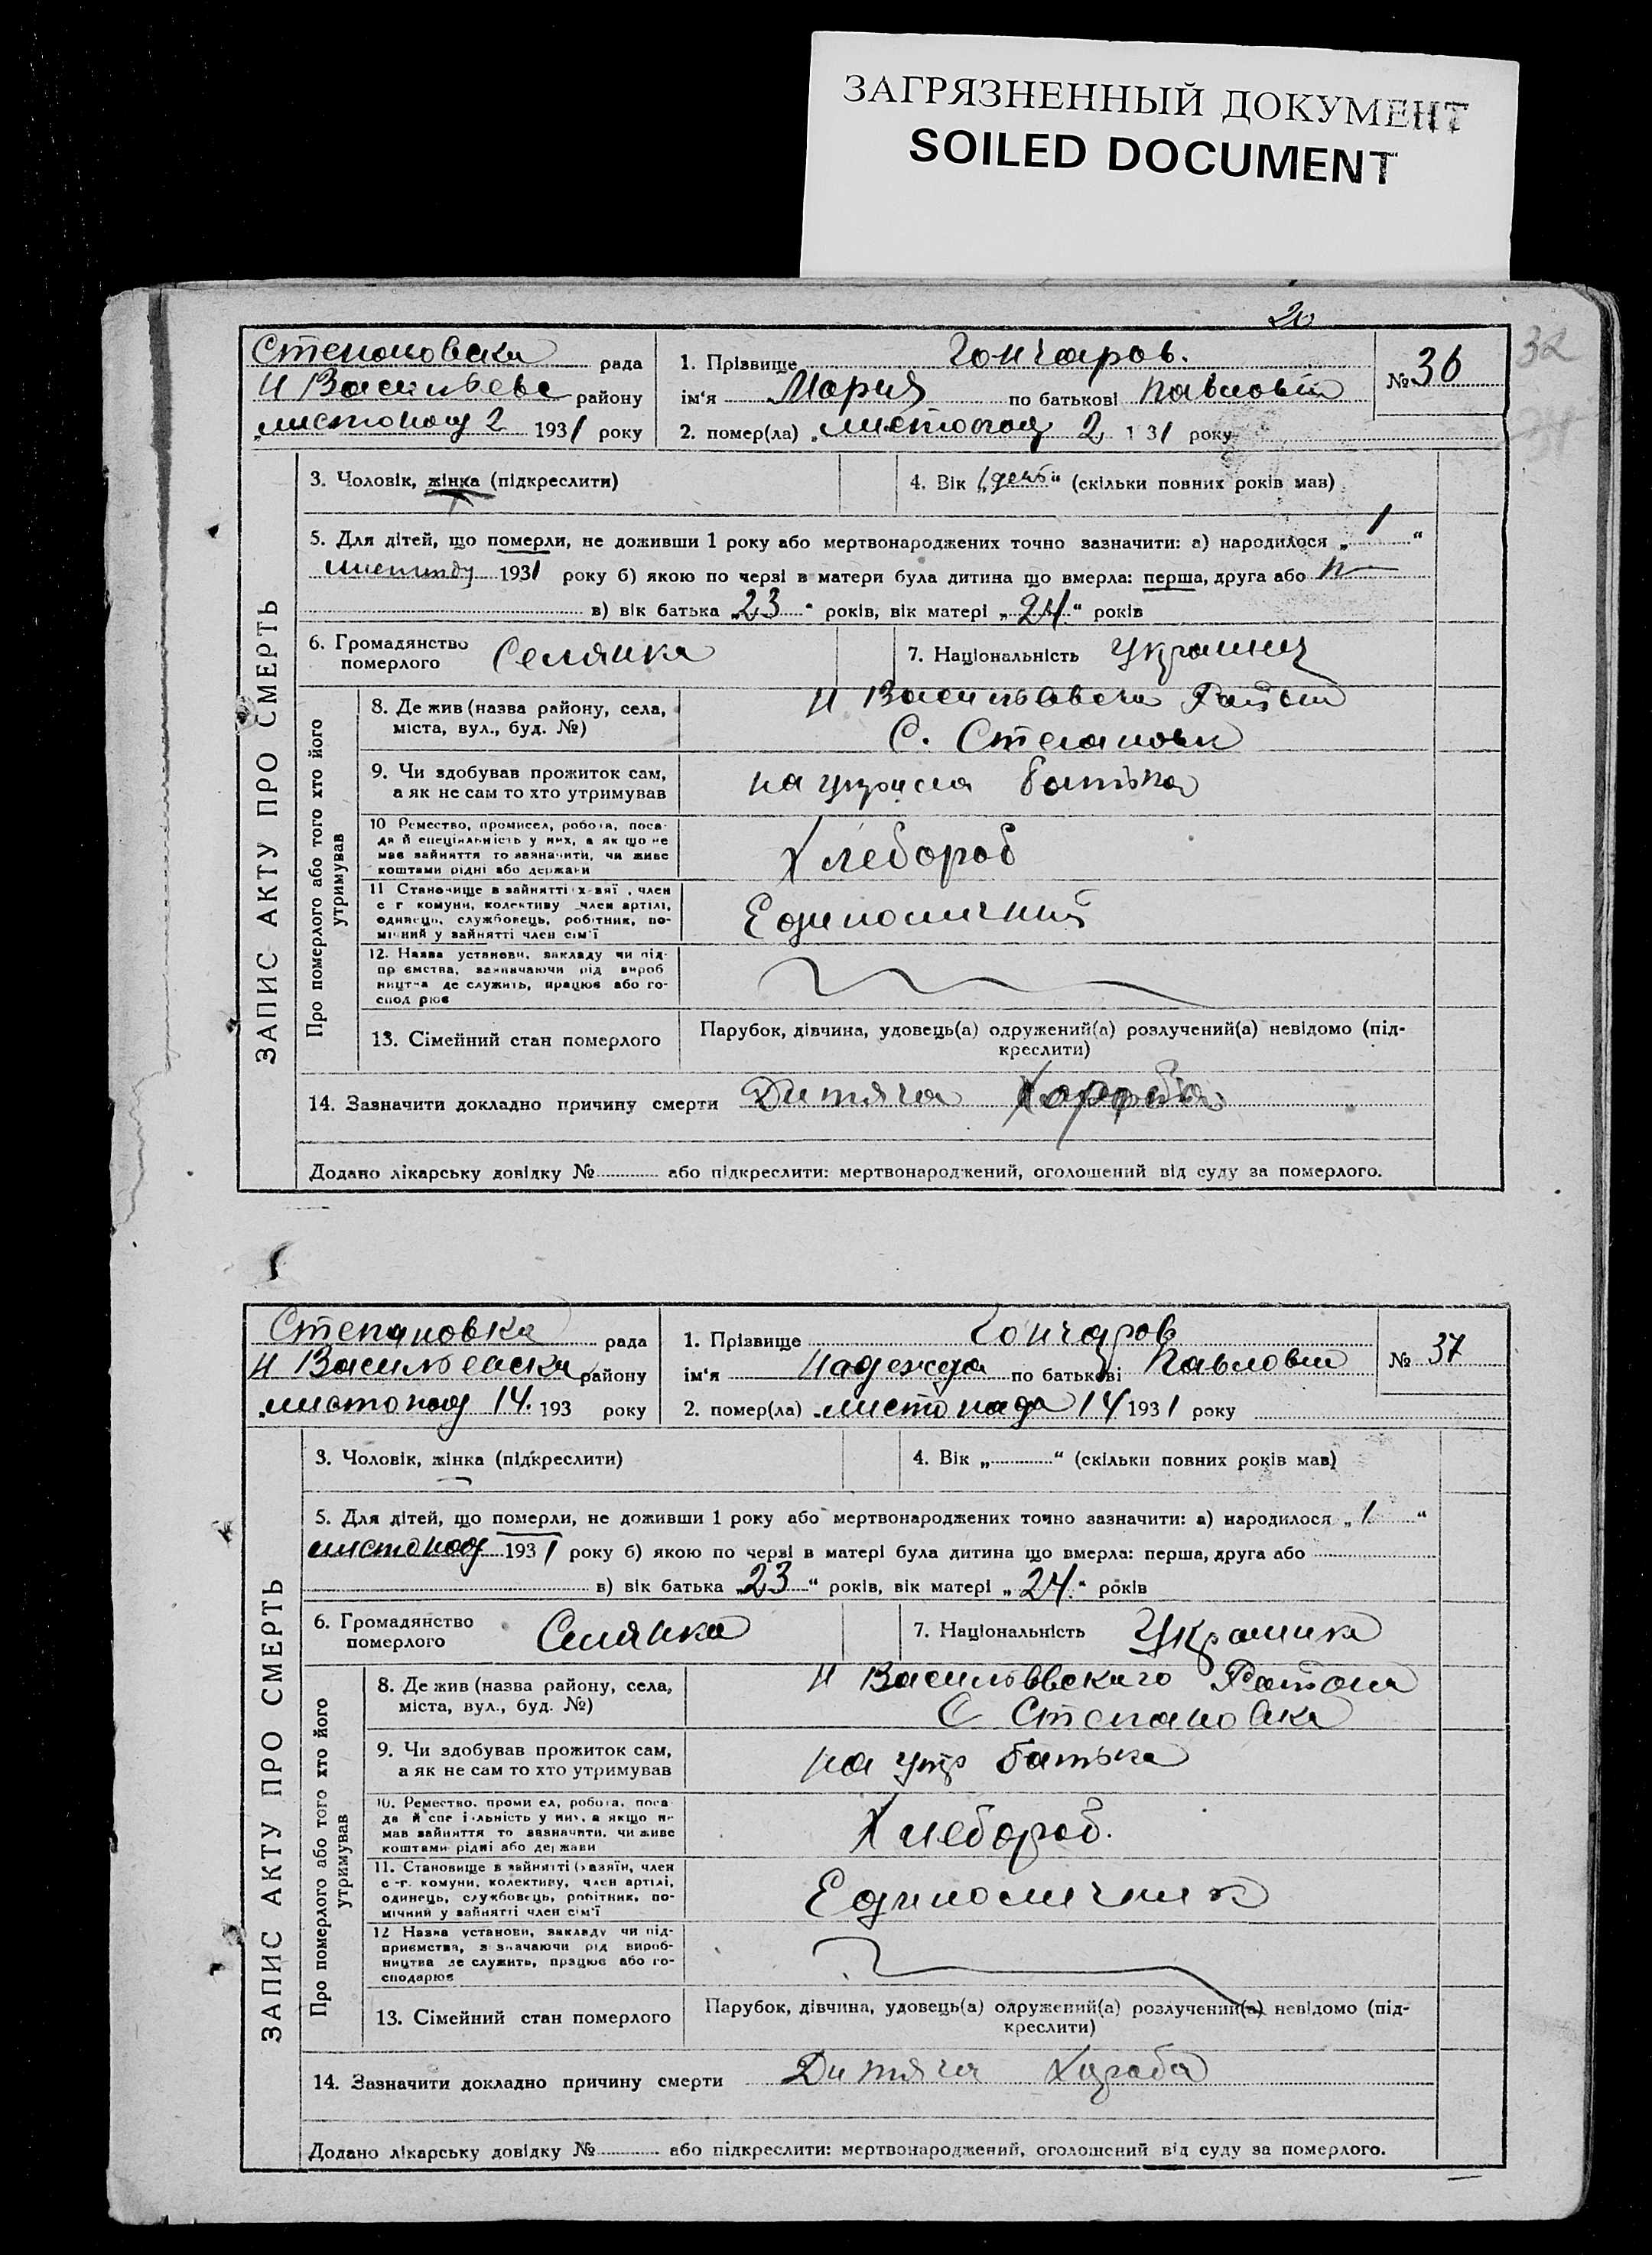 ЗАГРЯЗНЕННЫЙ ДОКУМЕНТ
SOILED DOCUMENT
20
32
Степановска рада
Н Васильевс району
листопад 2 1931 року
1. Прізвище Гончаров.
№ 36
ім'я Мария по батькові Павловн
2. помер(ла) листопад 2 1 31 року
ЗАПИС АКТУ ПРО СМЕРТЬ
3. Чоловік, жінка (підкреслити)
4. Вік „1 день“ (скільки повних років мав)
5. Для дітей, що померли, не доживши 1 року або мертвонароджених точно зазначити: а) народилося „1“
1931 року б) якою по черзі в матери була дитина що вмерла: перша, друга або
в) вік батька „23“ років, вік матері „24“ років
6. Громадянство померлого Селянка
7. Національність
Про померлого або того хто його утримував
8. Де жив (назва району, села, міста, вул., буд. №)
Н Васильевск Район
С. Степановк
9. Чи здобував прожиток сам, а як не сам то хто утримував
на батька
10 Ремество, промисел, робота, посада й спеціяльність у них, а як що не має зайняття то зазначити, чи живе коштами рідні або держави
Хлебороб
11 Становище в зайнятті х-зяї , член с г комуни, колективу член артілі, одинець, службовець, робітник, помічний у зайнятті член сім'ї
Единоличний
12. Назва установи, закладу чи підпр ємства, зазначаючи рід виробництва де служить, працює або господ рює
13. Сімейний стан померлого
Парубок, дівчина, удовець(а) одружений(а) розлучений(а) невідомо (підкреслити)
14. Зазначити докладно причину смерти Дитяча Хороба
Додано лікарську довідку № або підкреслити: мертвонароджений, оголошений від суду за померлого.
Степановка рада
Н Васильевска району
листопад 14. 193 року
1. Прізвище Гончаров
№ 37
ім'я Надежда по батькові Павловн
2. помер(ла) листопада 14 1931 року
ЗАПИС АКТУ ПРО СМЕРТЬ
3. Чоловік, жінка (підкреслити)
4. Вік „ “ (скільки повних років мав)
5. Для дітей, що померли, не доживши 1 року або мертвонароджених точно зазначити: а) народилося „1“
листопад 1931 року б) якою по черзі в матері була дитина що вмерла: перша, друга або
в) вік батька „23“ років, вік матері „24“ років
6. Громадянство померлого Селянка
7. Національність Украинка
Про померлого або того хто його утримував
8. Де жив (назва району, села, міста, вул., буд. №)
Н Васильевского Района
С Степановка
9. Чи здобував прожиток сам, а як не сам то хто утримував
на утр батька
10. Ремество, проми ел, робота, посада й спе і льність у них, а якщо не мав зайняття то зазначити, чи живе коштами рідні або держави
Хлебороб.
11. Становище в зайнятті (хазяїн, член с -г. комуни, колективу, член артілі, одинець, службовець, робітник, помічний у зайнятті член сім'ї
Единоличник
12 Назва установи, закладу чи підприємства, з значаючи рід виробництва де служить, працює або господарює
13. Сімейний стан померлого
Парубок, дівчина, удовець(а) одружений(а) розлучений(а) невідомо (підкреслити)
14. Зазначити докладно причину смерти Дитяча Хороба
Додано лікарську довідку № або підкреслити: мертвонароджений, оголошений від суду за померлого.